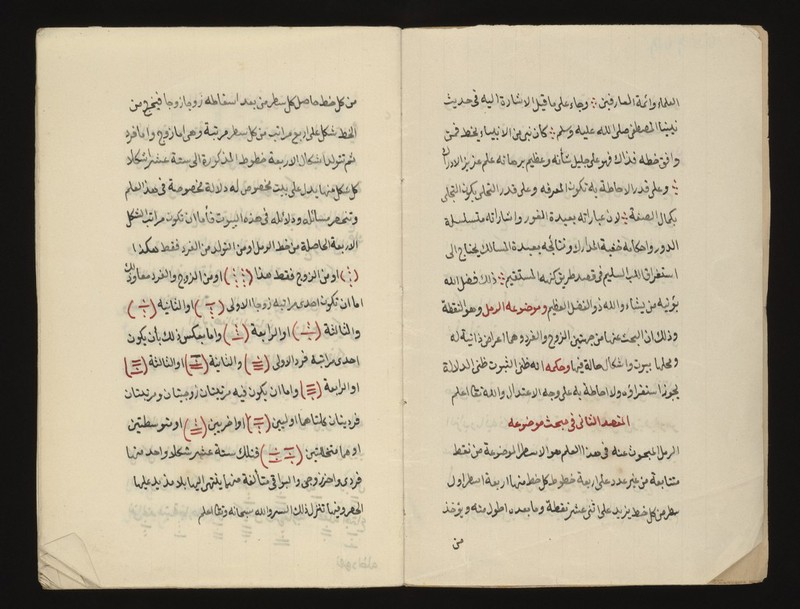 العلماء وائمة العارفين وجاء على ما قيل الاشارة اليه فى حديث
نبينا المصطفى صلى الله عليه وسلم كان نبى من الانبياء يخط فمن
وافق خطه فذاك فهو على جليل شأنه وعظيم برهانه علم عزيز الادراك
وعلى قدر الاحاطة به تكون المعرفه وعلى قدر التحلى يكون التجلى
بكمال الصفة لان عباراته بعيدة الغور واشاراته متسلسلة
الدور واحكامه خفية المدارك ونتائجه بعيدة المسالك يحتاج الى
استغراق القلب السليم فى قصد طريق المستقيم ذلك فضل الله
يؤتيه من يشاء والله ذو الفضل العظيم وموضوعه الرمل وهو النقطة
وذلك ان البحث عنها من جهتين الزوج والفرد وهما اعراض ذاتية له
ومحلها بيوت واشكال حالة فيها وحكمه انه ظنى الثبوت ظنى الدلالة
يجوز استقراؤه ولا احاطة به على وجه الاعتدال والله تعالى اعلم
المقصد الثانى فى مبحث موضوعه
الرمل المبحوث عنه فى هذا العلم هو الاسطر الموضوعة من نقط
متتابعة من غير عدد على اربعة خطوط كل خط منها اربعة اسطر اول
سطر من كل خط يزيد على اثنى عشر نقطة وما بعده اطول منه ويؤخذ
من
من كل خط حاصل كل سطر من بعد اسقاطه زوجا زوجا فيخرج من
الخط شكل على اربع مراتب من كل سطر مرتبة وهى اما زوج واما فرد
ثم تتولد اشكال الاربعة خطوط المذكورة الى ستة عشر شكلا
كل شكل منها يدل على بيت مخصوص له دلالة مخصوصة فى هذا العلم
وتنحصر مسائله ودلائله فى هذه البيوت فأما ان تكون مراتب الشكل
الاربعة الحاصلة من خط الرمل او من التولد من الفرد فقط هكذا
او من الزوج فقط هذا او من الزوج والفرد معا وذلك
اما ان تكون احدى مراتبه زوجا الاولى او الثانيه
والثالثة او الرابعة واما بعكس ذلك بأن يكون
احدى مراتبه فردا الاولى والثانية او الثالثة
او الرابعة واما ان يكون فيه مرتبتان زوجيتان ومرتبتان
فرديتان كلتاهما اوليين او اخريين او متوسطتين
او فتلك ستة عشر شكلا واحد منها
فردى واخر زوجى والبواقى متألفة منهما ينتهى اليها بلا مزيد عليها
الحصر وينها تتنزل ذلك السر والله سبحانه وتعالى اعلم